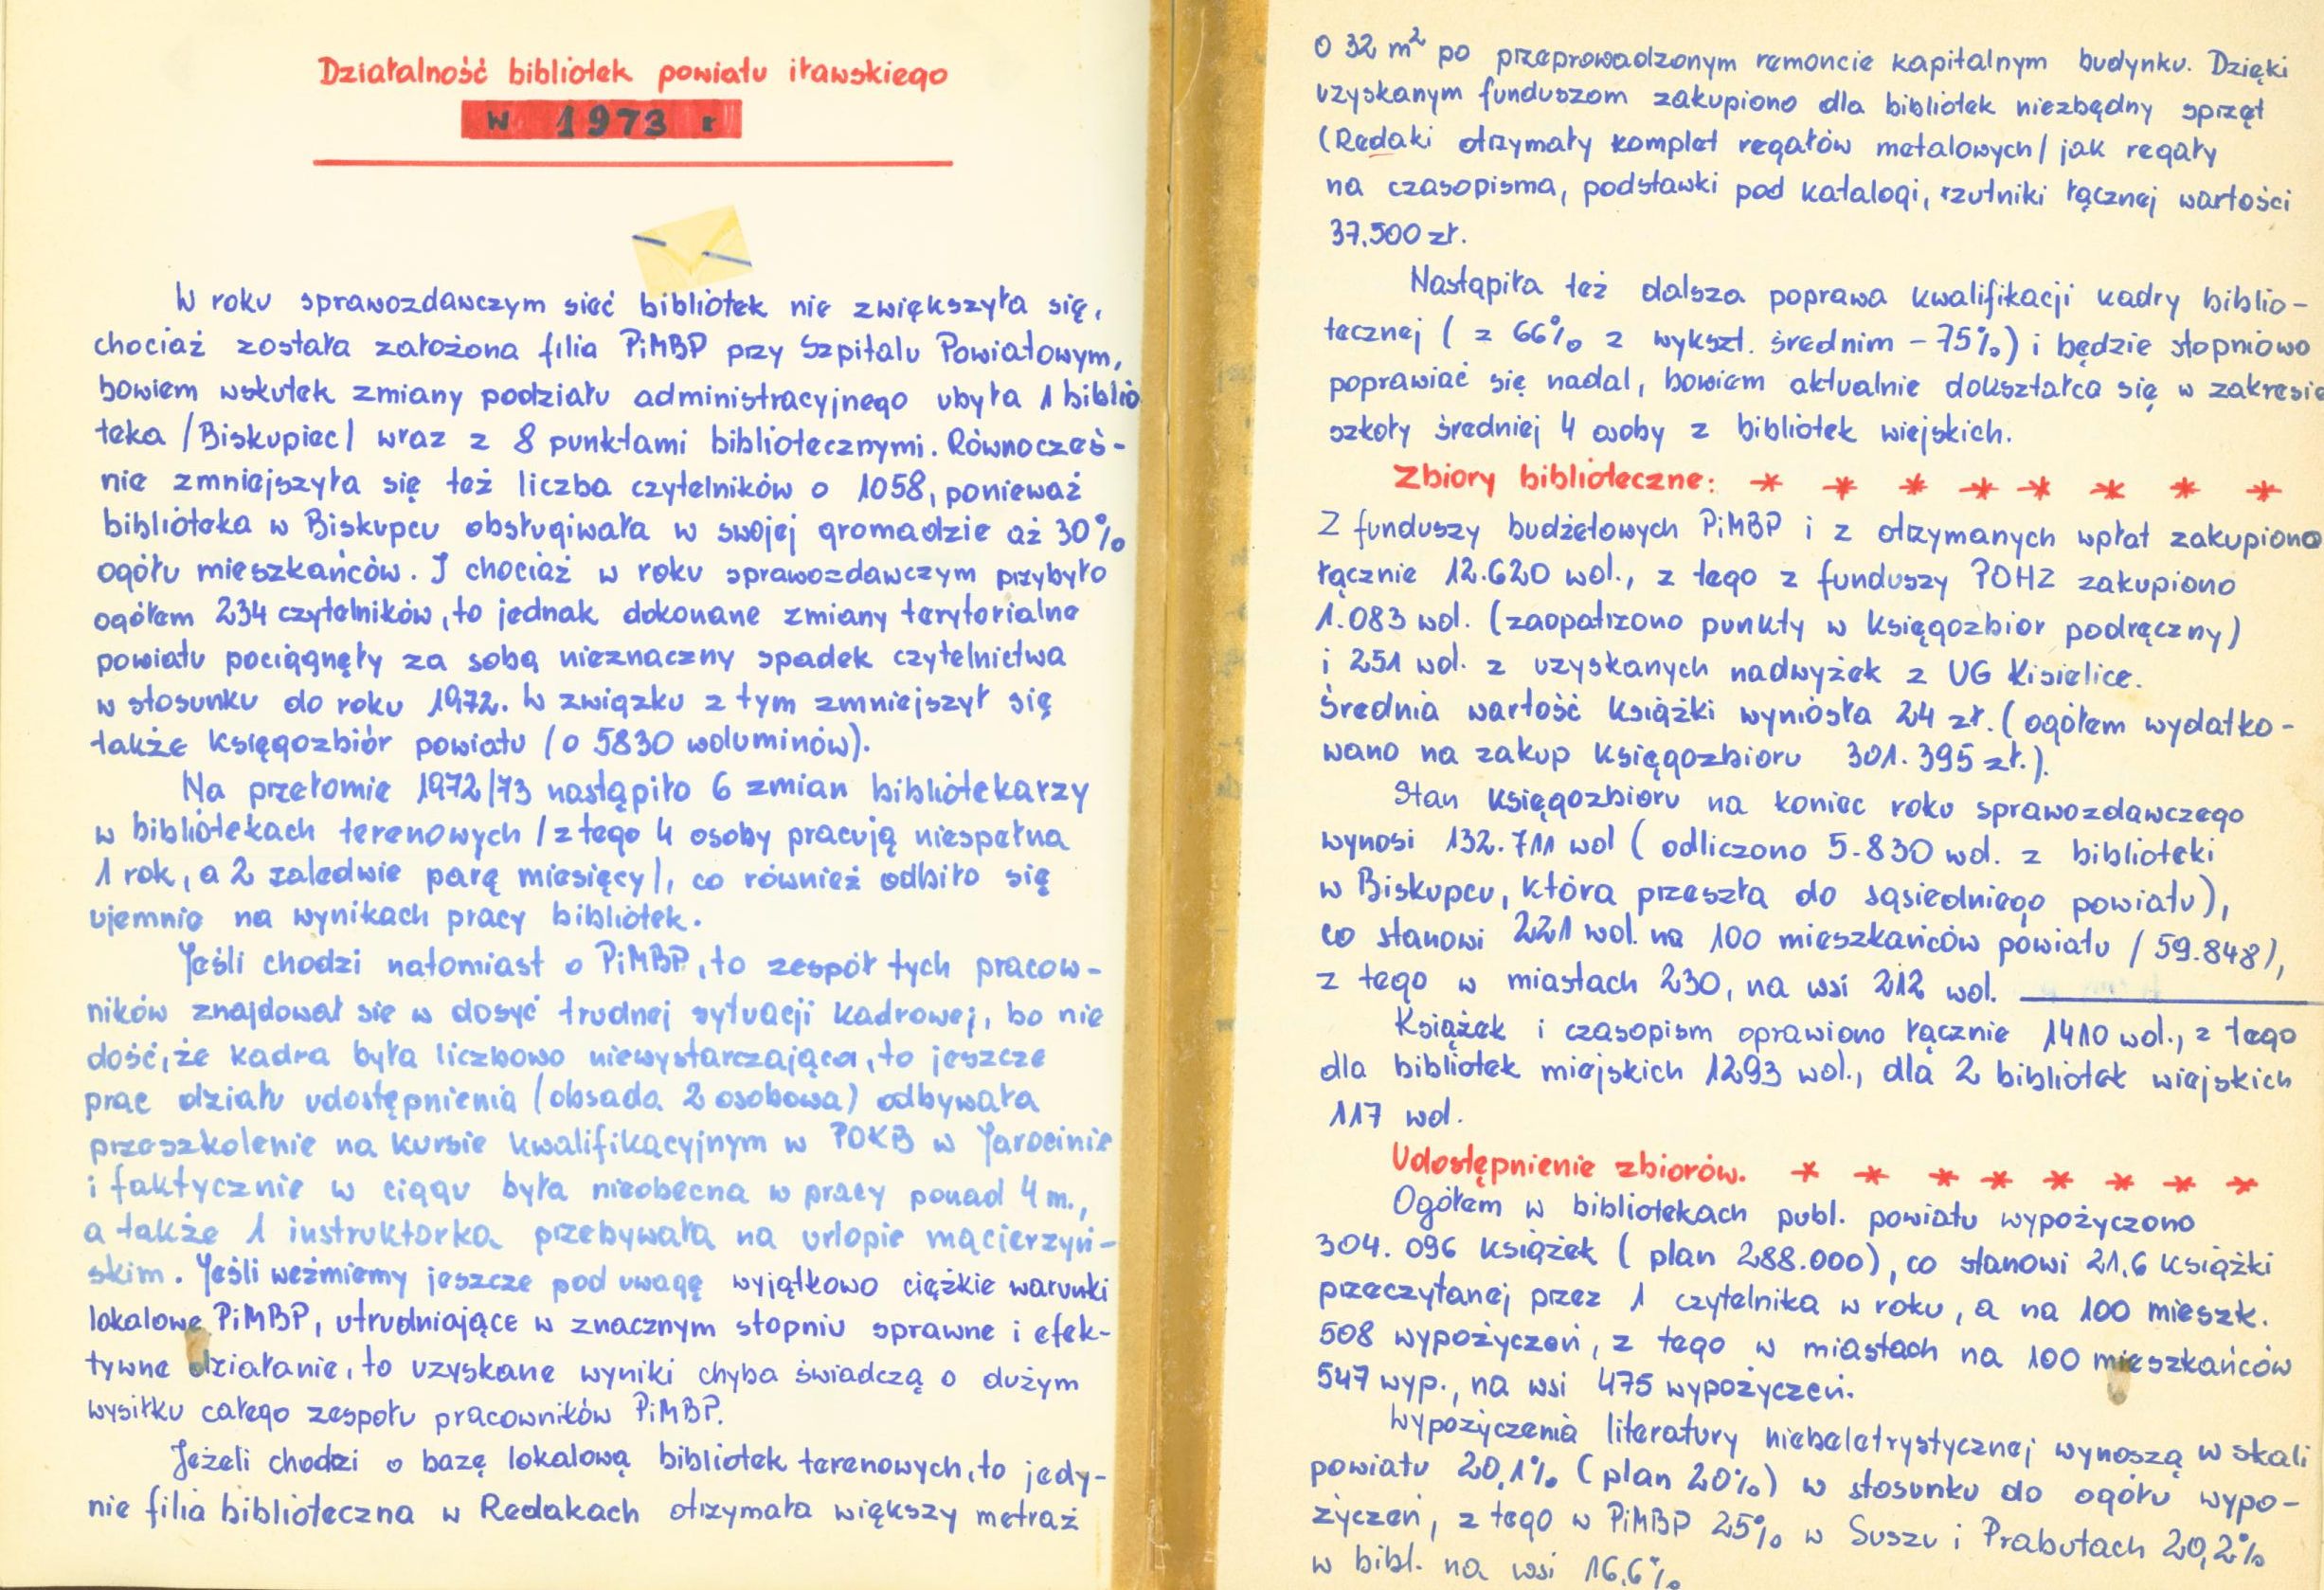 Działalność bibliotek powiatu iławskiego
w 1973 r
W roku sprawozdawczym sieć bibliotek nie zwiększyła się,
chociaż została założona filia PiMBP przy Szpitalu Powiatowym,
bowiem wskutek zmiany podziału administracyjnego ubyła 1 biblio
teka /Biskupiec/ wraz z 8 punktami bibliotecznymi. Równocześ-
nie zmniejszyła się też liczba czytelników o 1058, ponieważ
biblioteka w Biskupcu obsługiwała w swojej gromadzie aż 30%
ogółu mieszkańców. I chociaż w roku sprawozdawczym przybyło
ogółem 234 czytelników, to jednak dokonane zmiany terytorialne
powiatu pociągnęły za sobą nieznaczny spadek czytelnictwa
w stosunku do roku 1972. W związku z tym zmniejszył się
także księgozbiór powiatu (o 5830 woluminów).
Na przełomie 1972/73 nastąpiło 6 zmian bibliotekarzy
w bibliotekach terenowych /z tego 4 osoby pracują niespełna
1 rok, a 2 zaledwie parę miesięcy/, co również odbiło się
ujemnie na wynikach pracy bibliotek.
Jeśli chodzi natomiast o PiMBP, to zespół tych pracow-
ników znajdował sie w dosyć trudnej sytuacji kadrowej, bo nie
dość, że kadra była liczbowo niewystarczająca, to jeszcze
prac działu udostępnienia (obsada 2 osobowa) odbywała
przeszkolenie na kursie kwalifikacyjnym w POKB w Jarocinie
i faktycznie w ciągu była nieobecna w pracy ponad 4 m.,
a także 1 instruktorka przebywała na urlopie macierzyń-
skim. Jeśli weźmiemy jeszcze pod uwagę wyjątkowo ciężkie warunki
lokalowe PiMBP, utrudniające w znacznym stopniu sprawne i efek-
tywne działanie, to uzyskane wyniki chyba świadczą o dużym
wysiłku całego zespołu pracowników PiMBP.
Jeżeli chodzi o bazę lokalową bibliotek terenowych, to jedy-
nie filia biblioteczna w Redakach otrzymała większy metraż
o 32 m² po przeprowadzonym remoncie kapitalnym budynku. Dzięki
uzyskanym funduszom zakupiono dla bibliotek niezbędny sprzęt
(Redaki otrzymały komplet regałów metalowych/ jak regały
na czasopisma, podstawki pod katalogi, rzutniki łącznej wartości
37.500 zł.
Nastąpiła też dalsza poprawa kwalifikacji kadry biblio-
tecznej ( z 66% z wykszt. średnim - 75%) i będzie stopniowo
poprawiać się nadal, bowiem aktualnie dokształca się w zakresie
szkoły średniej 4 osoby z bibliotek wiejskich.
Zbiory biblioteczne: * * * * * * * *
Z funduszy budżetowych PiMBP i z otrzymanych wpłat zakupiono
łącznie 12.620 wol., z tego z funduszy POHZ zakupiono
1.083 wol. (zaopatrzono punkty w księgozbior podręczny)
i 251 wol. z uzyskanych nadwyżek z UG Kisielice.
Średnia wartość książki wyniosła 24 zł. ( ogółem wydatko-
wano na zakup księgozbioru 301.395 zł.).
Stan księgozbioru na koniec roku sprawozdawczego
wynosi 132.711 wol ( odliczono 5.830 wol. z biblioteki
w Biskupcu, która przeszła do sąsiedniego powiatu),
co stanowi 221 wol. na 100 mieszkańców powiatu / 59.848/,
z tego w miastach 230, na wsi 212 wol.
Książek i czasopism oprawiono łącznie 1410 wol., z tego
dla bibliotek miejskich 1293 wol., dla 2 bibliotek wiejskich
117 wol.
Udostępnienie zbiorów. * * * * * * * *
Ogółem w bibliotekach publ. powiatu wypożyczono
304.096 książek ( plan 288.000), co stanowi 21,6 książki
przeczytanej przez 1 czytelnika w roku, a na 100 mieszk.
508 wypożyczeń, z tego w miastach na 100 mieszkańców
547 wyp., na wsi 475 wypożyczeń.
Wypożyczenia literatury niebeletrystycznej wynoszą w skali
powiatu 20,1% ( plan 20%) w stosunku do ogółu wypo-
życzeń, z tego w PiMBP 25% w Suszu i Prabutach 20,2%
w bibl. na wsi 16,6%